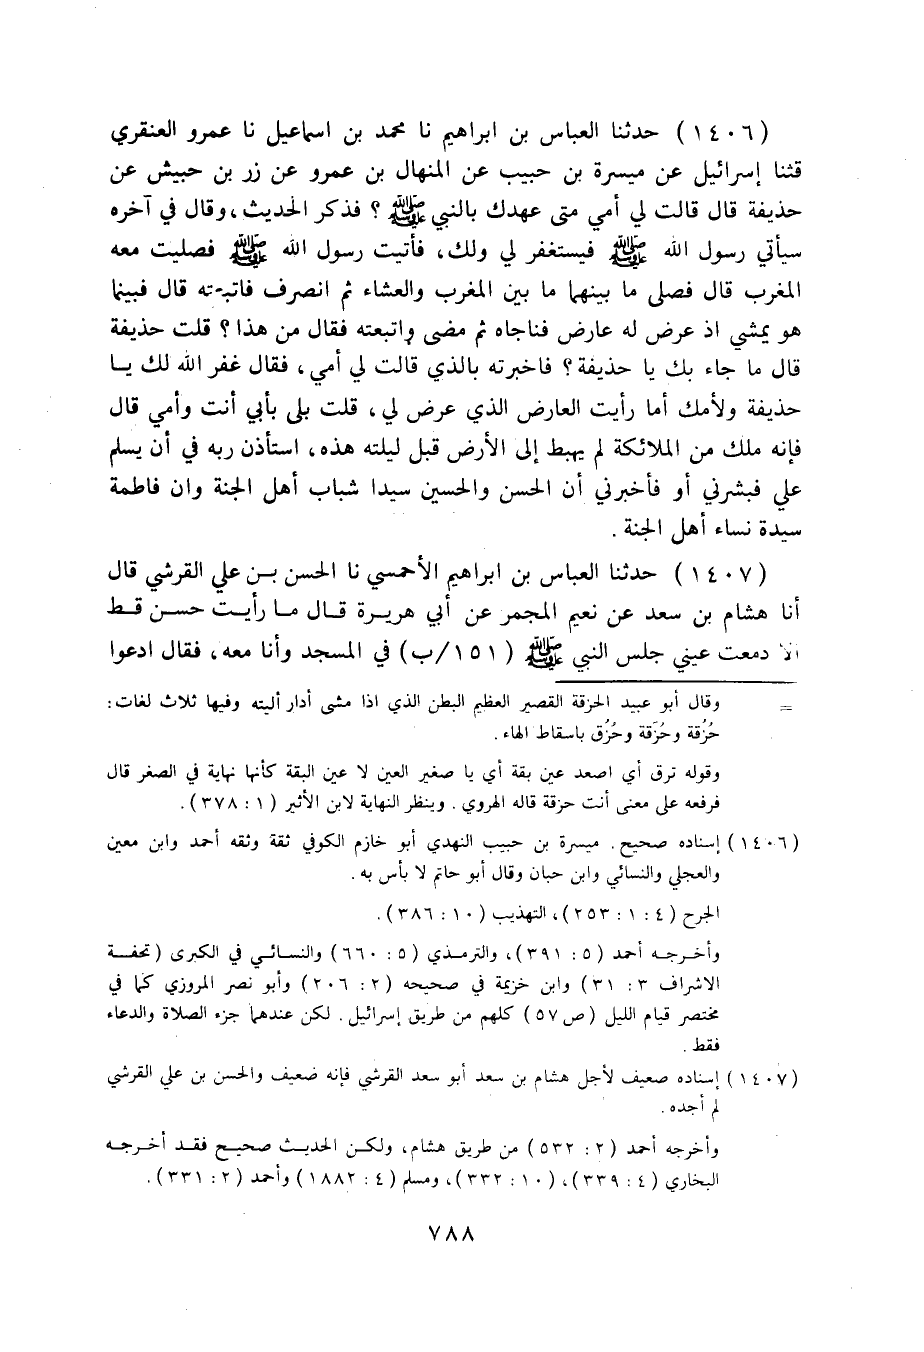 (١٤٠٦) حدثنا العباس بن ابراهيم نا محمد بن اسماعيل نا عمرو العنقري
قثنا إسرائيل عن ميسرة بن حبيب عن المنهال بن عمرو عن زر بن حبيش عن
حذيفة قال قالت لي أمي متى عهدك بالنبي ﷺ ؟ فذكر الحديث، وقال في آخره
سيأتي رسول الله ﷺ فيستغفر لي ولك، فأتيت رسول الله ﷺ فصليت معه
المغرب قال فصلى ما بينهما ما بين المغرب والعشاء ثم انصرف فاتبعته قال فبينما
هو يمشي اذ عرض له عارض فناجاه ثم مضى واتبعته فقال من هذا ؟ قلت حذيفة
قال ما جاء بك يا حذيفة؟ فاخبرته بالذي قالت لي أمي، فقال غفر الله لك يـا
حذيفة ولأمك أما رأيت العارض الذي عرض لي، قلت بلى بأبي أنت وأمي قال
فإنه ملك من الملائكة لم يهبط إلى الأرض قبل ليلته هذه، استأذن ربه في أن يسلم
علي فبشرني أو فأخبرني أن الحسن والحسين سيدا شباب أهل الجنة وان فاطمة
سيدة نساء أهل الجنة .
(١٤٠٧) حدثنا العباس بن ابراهيم الأحمسي نا الحسن بـن علي القرشي قال
أنا هشام بن سعد عن نعيم المجمر عن أبي هريرة قـال مـا رأيـت حسـن قـط
الا دمعت عيني جلس النبي ﷺ (١٥١/ب) في المسجد وأنا معه، فقال ادعوا
= وقال أبو عبيد الحزقة القصير العظيم البطن الذي اذا مشى أدار أليته وفيها ثلاث لغات:
حُزُقة وحُزَقة وحُزُق باسقاط الهاء .
وقوله ترق أي اصعد عين بقة أي يا صغير العين لا عين البقة كأنها نهاية في الصغر قال
فرفعه على معنى أنت حزقة قاله الهروي . وينظر النهاية لابن الأثير (١: ٣٧٨).
(١٤٠٦) إسناده صحيح. ميسرة بن حبيب النهدي أبو خازم الكوفي ثقة وثقه أحمد وابن معين
والعجلي والنسائي وابن حبان وقال أبو حاتم لا بأس به .
الجرح (٤: ١: ٢٥٣)، التهذيب (١٠: ٣٨٦).
وأخـرجـه أحمد (٥: ٣٩١)، والترمـذي (٥: ٦٦٠) والنسـائـي في الكبرى (تحفـة
الاشراف ٣: ٣١) وابن خزيمة في صحيحه (٢: ٢٠٦) وأبو نصر المروزي كما في
مختصر قيام الليل (ص ٥٧) كلهم من طريق إسرائيل . لكن عندهما جزء الصلاة والدعاء
فقط .
(١٤٠٧) إسناده ضعيف لأجل هشام بن سعد أبو سعد القرشي فإنه ضعيف والحسن بن علي القرشي
لم أجده .
وأخرجه أحمد (٢: ٥٣٢) من طريق هشام، ولكـن الحديـث صحيـح فقـد أخـرجـه
البخاري (٤: ٣٣٩)، (١٠: ٣٣٢)، ومسلم (٤: ١٨٨٢) وأحمد (٢: ٣٣١).
٧٨٨